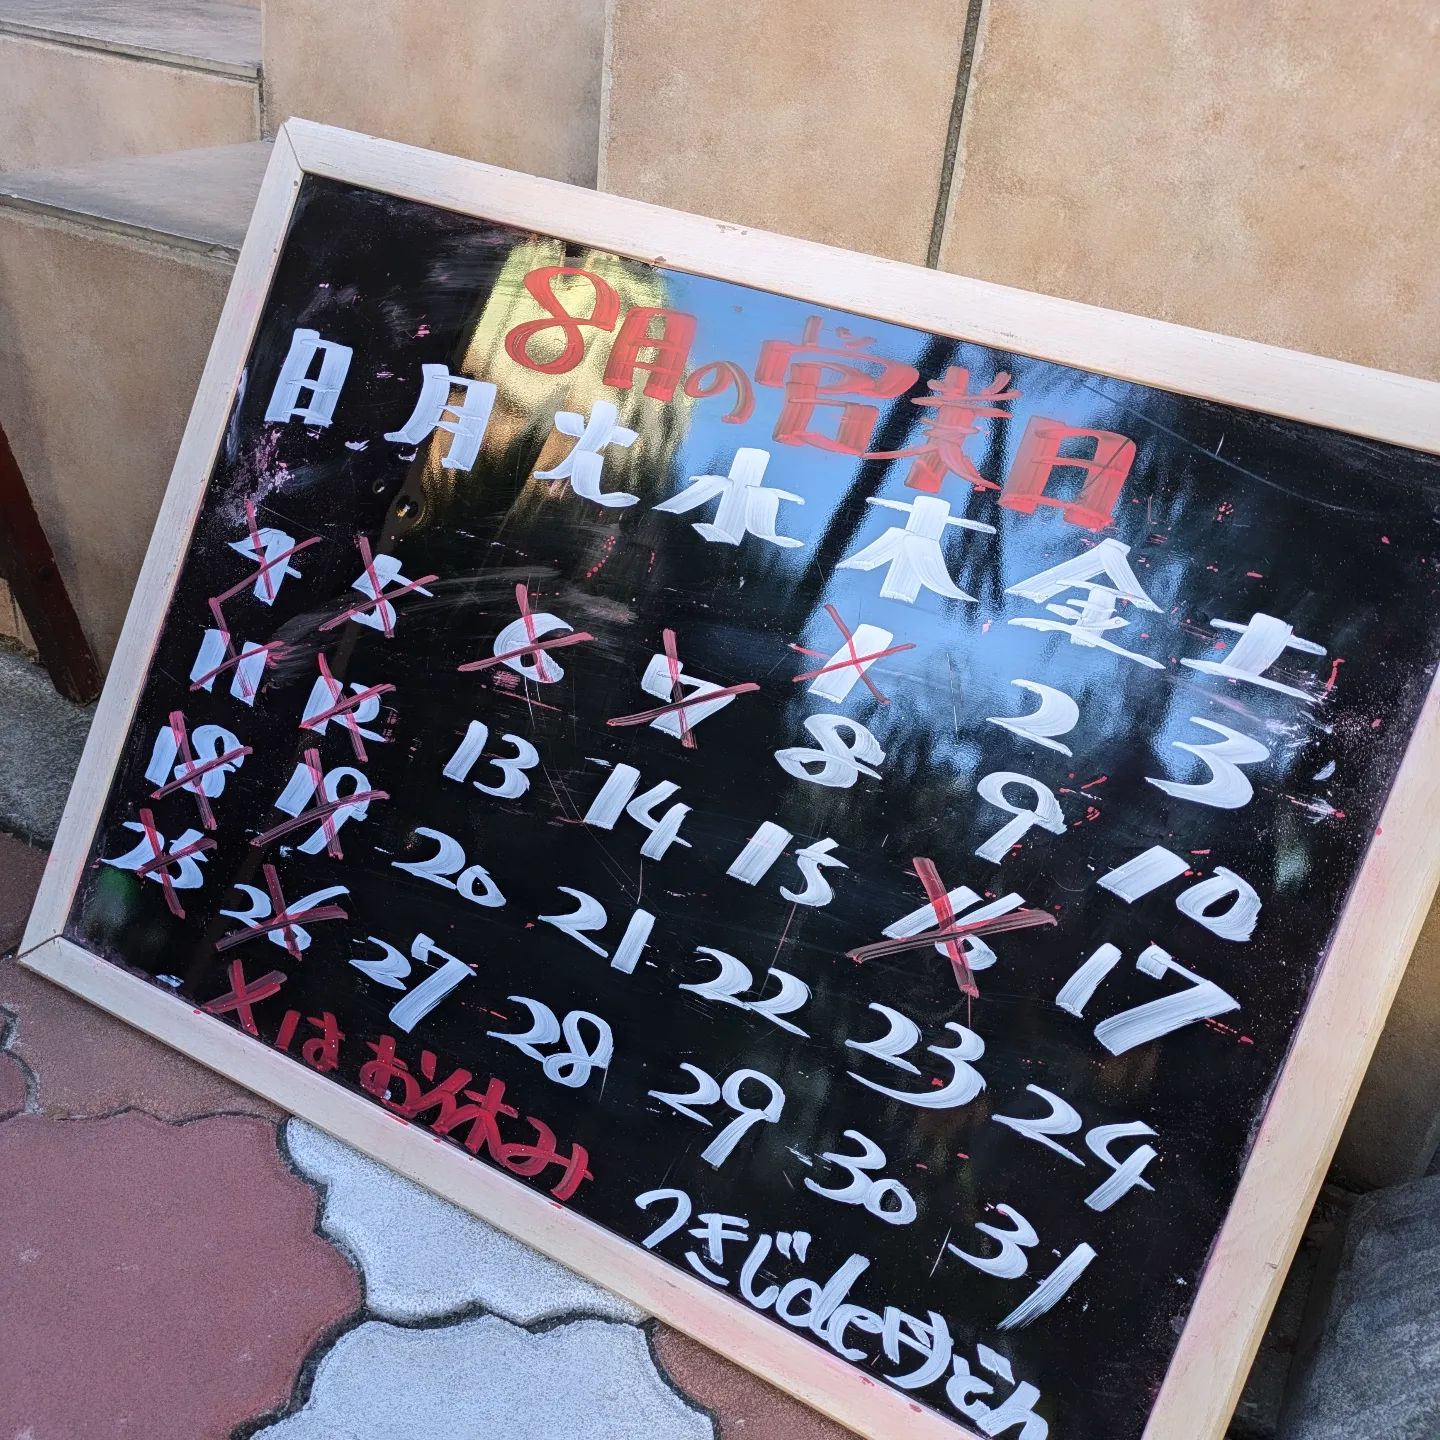 8月の営業日
日 月 火 水 木 金 土
1 2 3
4 5 6 7 8 9 10
11 12 13 14 15 16 17
18 19 20 21 22 23 24
25 26 27 28 29 30 31
×はお休み